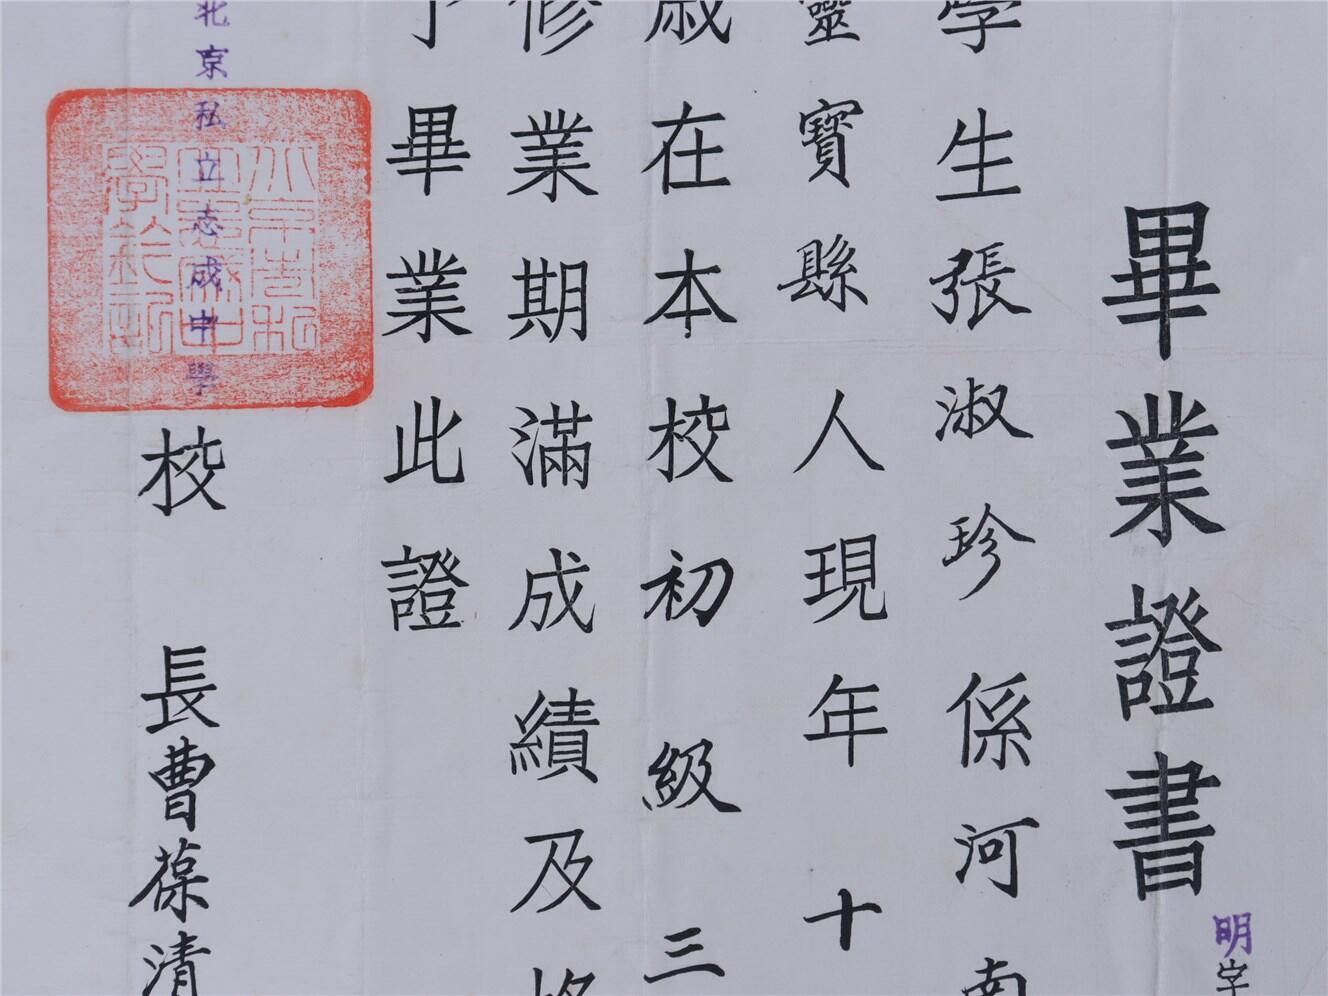 畢業證書
明字
學生張淑珍係河南
靈寶縣人現年十
歲在本校初級三
修業期滿成績及格
予畢業此證
北京私立志成中學
校長曹葆清